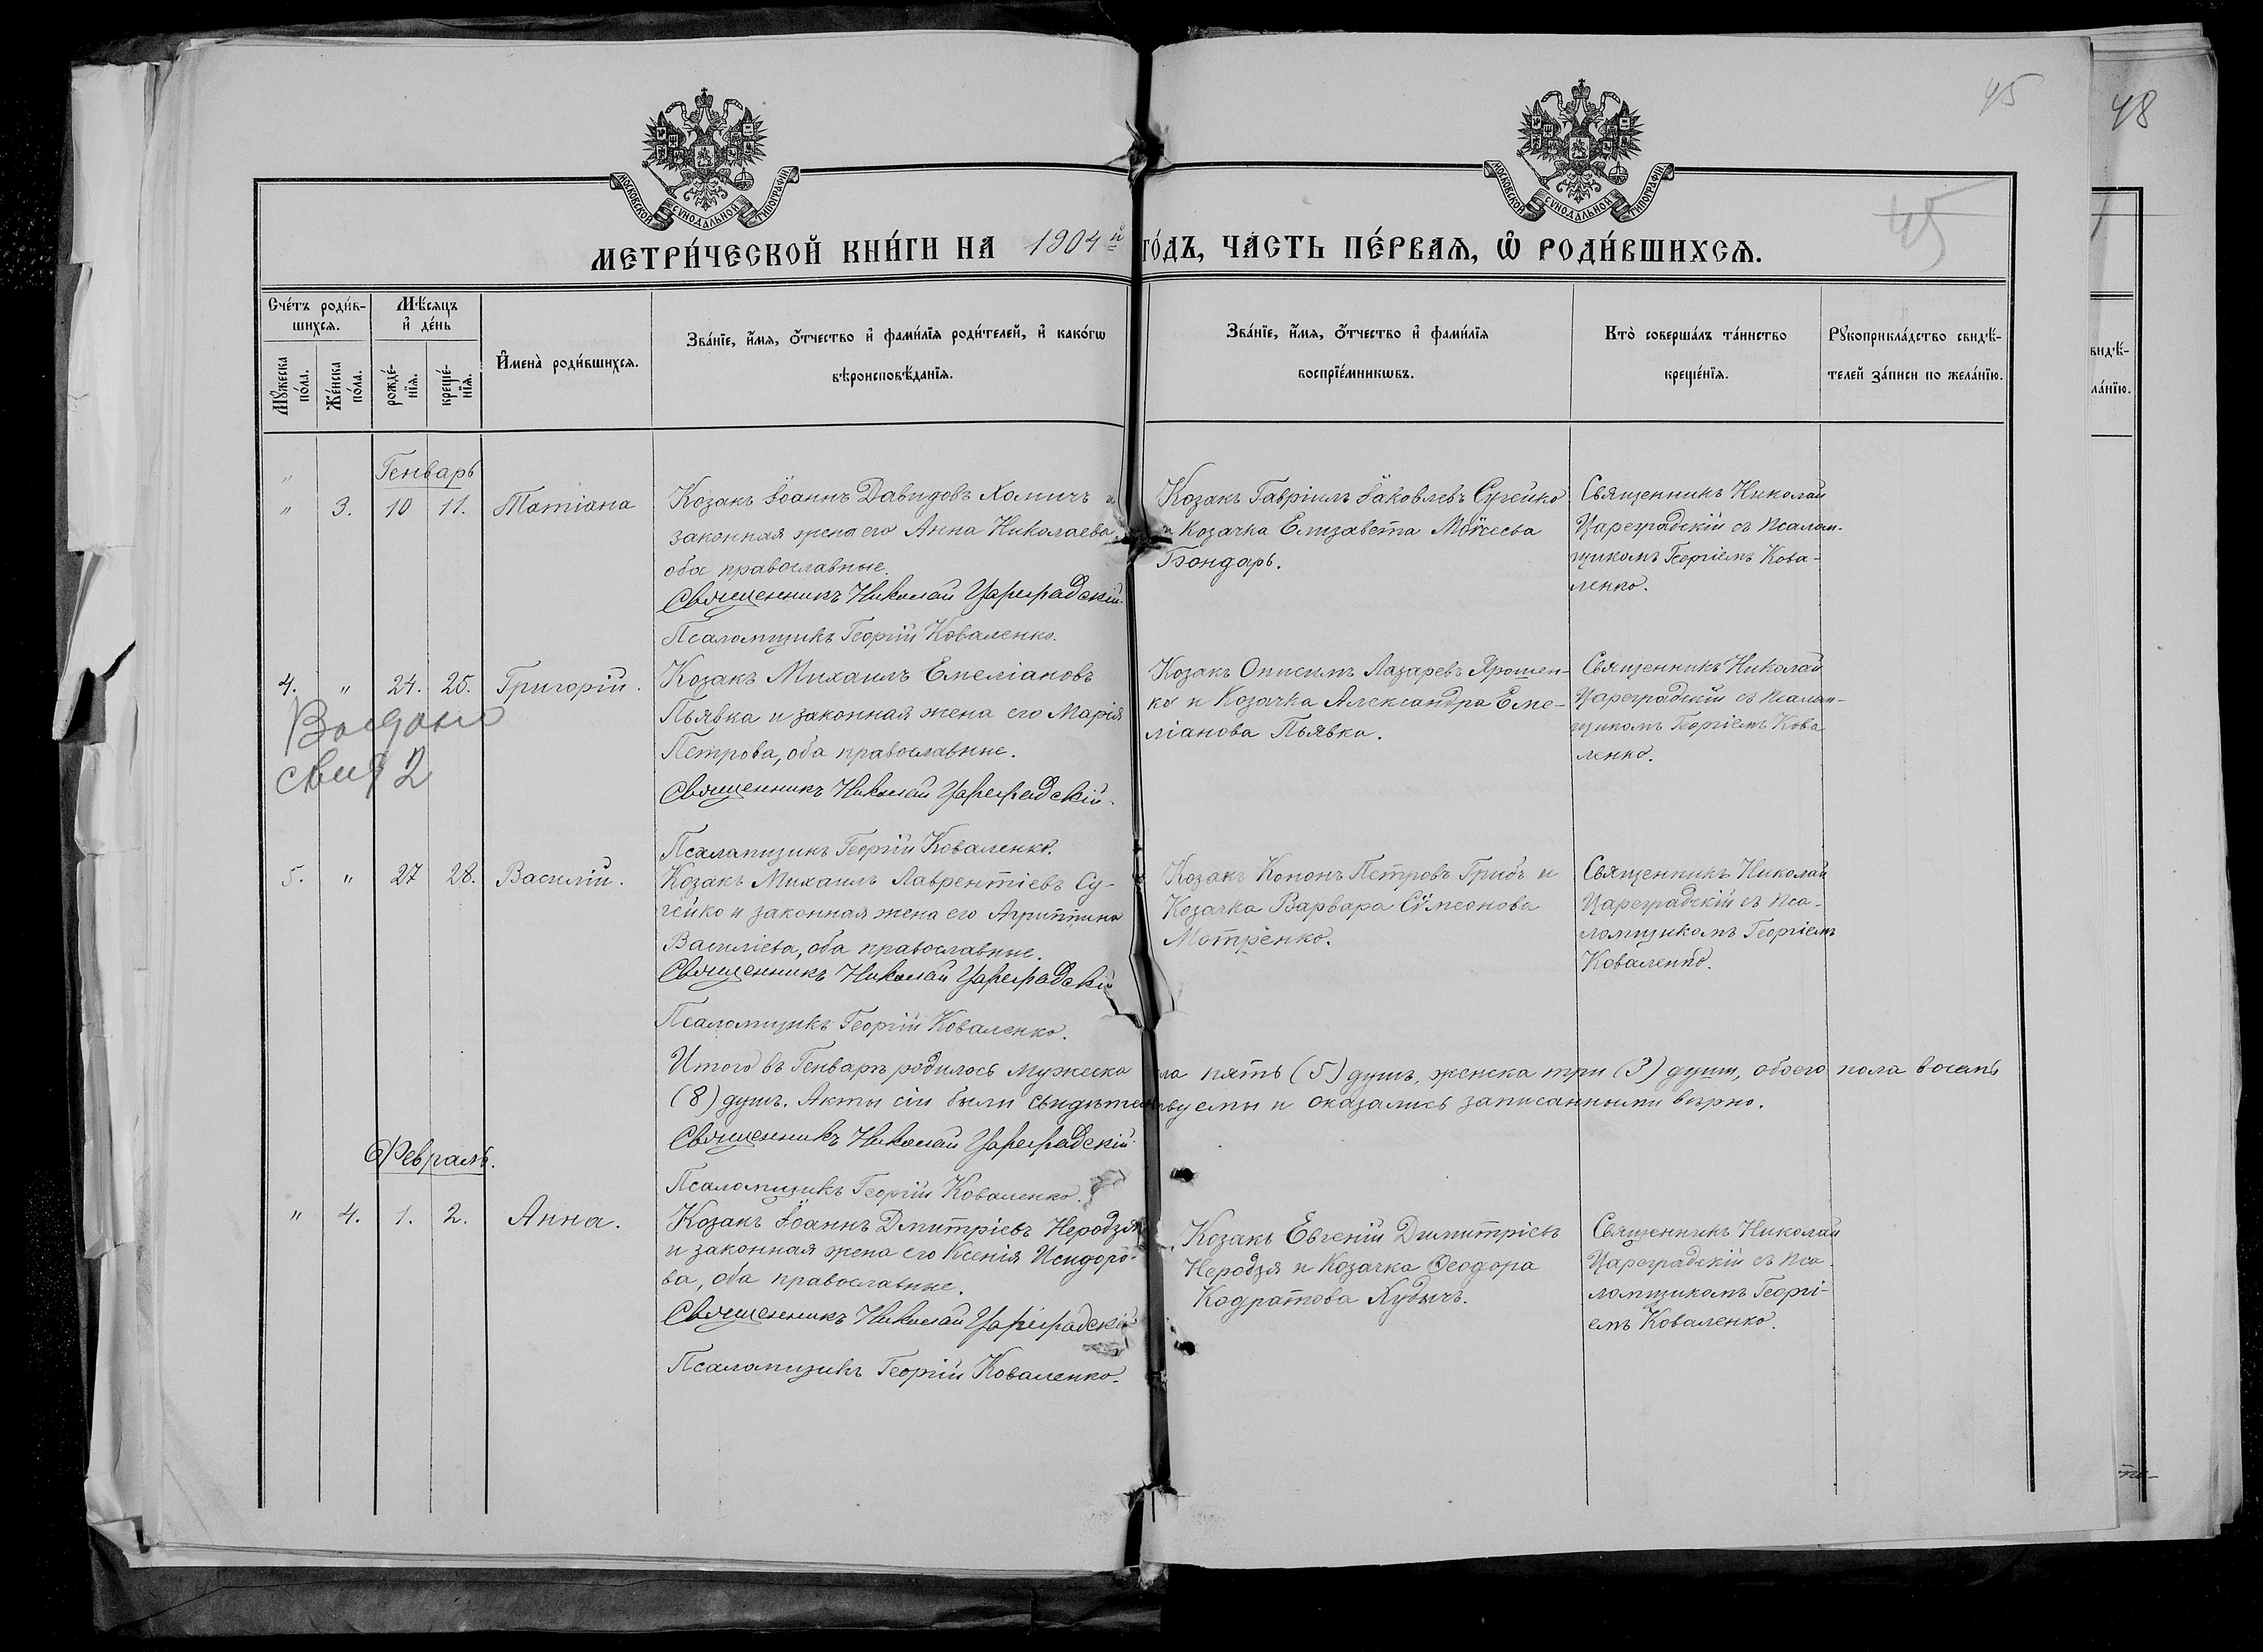 45
48
МОСКОВСКОЙ СѴНОДАЛЬНОЙ ТИПОГРАФІИ
МОСКОВСКОЙ СѴНОДАЛЬНОЙ ТИПОГРАФІИ
45
МЕТРИ́ЧЕСКОЙ КНИ́ГИ НА 1904 й ГО́ДЪ, ЧА́СТЬ ПЕ́РВАѦ, Ѡ҆ РОДИ́ВШИХСѦ.
Сче́тъ роди́вшихсѧ.
Мꙋ́жеска по́ла.
Же́нска по́ла.
Мѣ́сѧцъ и҆ де́нь
рожде́нїѧ.
креще́нїѧ.
И҆мена̀ роди́вшихсѧ.
Зва́нїе, и҆́мѧ, о҆́тчество и҆ фами́лїѧ роди́телей, и҆ како́гѡ
вѣроисповѣ́данїѧ.
Зва́нїе, и҆́мѧ, о҆́тчество и҆ фами́лїѧ
воспрїе́мникѡвъ.
Кто̀ соверша́лъ та́инство
креще́нїѧ.
Рꙋкоприкла́дство свидѣ́-
телей за́писи по жела́нїю.
видѣ́-
ла́нїю.
Генварь
" 3. 10 11. Татіана
Козакъ Іоаннъ Давидовъ Хомичъ и
законная жена его Анна Николаева,
оба православные.
Священникъ Николай Цареградскій.
Псаломщикъ Георгій Коваленко.
Козакъ Гавріилъ Іаковлевъ Сугейко
и Козачка Елизавета Моѵсеева
Бондарь.
Священникъ Николай
Цареградскій съ псалом-
щикомъ Георгіемъ Кова-
ленко.
4. " 24. 25. Григорій.
свид 2
Козакъ Михаилъ Емеліановъ
Пьявка и законная жена его Марія
Петрова, оба православные.
Священникъ Николай Цареградскій.
Псаломщикъ Георгій Коваленко.
Козакъ Онисимъ Лазаревъ Ярошен-
ко и Козачка Александра Еме-
ліанова Пьявка.
Священникъ Николай
Цареградскій съ псалом-
щикомъ Георгіемъ Кова
ленко.
5. " 27 28. Василій.
Козакъ Михаилъ Лаврентіевъ Су-
гейко и законная жена его Агриппина
Василіева, оба православные.
Священникъ Николай Цареградскій
Псаломщикъ Георгій Коваленко.
Козакъ Кононъ Петровъ Гридъ и
Козачка Варвара Сѵмеонова
Мотренко.
Священникъ Николай
Цареградскій съ пса-
ломщикомъ Георгіемъ
Коваленко.
Итого въ Генварѣ родилось мужеска пола пять (5) душъ, женска три (3) души, обоего пола восемь
(8) душъ. Акты сіи были свидѣтельствуемы и оказались записанными вѣрно.
Священникъ Николай Цареградскій.
Псаломщикъ Георгій Коваленко.
Февраль.
" 4. 1. 2. Анна.
Козакъ Іоаннъ Дмитріевъ Неродзя
и законная жена его Ксенія Исидоро-
ва, оба православные.
Священникъ Николай Цареградскій
Псаломщикъ Георгій Коваленко.
Козакъ Евгеній Димитріевъ
Неродзя и Козачка Ѳеодора
Кодратова Худычъ.
Священникъ Николай
Цареградскій съ пса-
ломщикомъ Георгі-
емъ Коваленко.